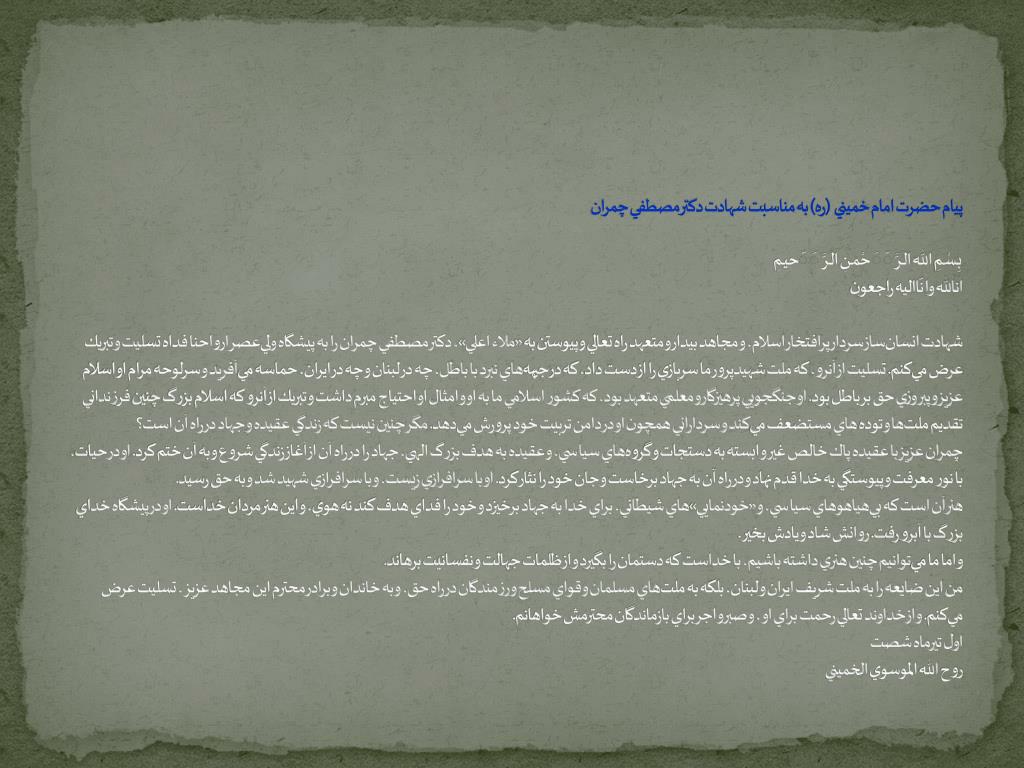 پيام حضرت امام خميني (ره) به مناسبت شهادت دكتر مصطفي چمران
بِسْمِ الله الرَّحْمنِ الرَّحيم
انالله وانّااليه راجعون
شهادت انسان‌ساز سردار پرافتخار اسلام، و مجاهد بيدار و متعهد راه تعالي و پيوستن به «ملاء اعلي»، دكتر مصطفي چمران را به پيشگاه ولي‌عصر ارواحنا فداه تسليت و تبريك
عرض مي‌كنم. تسليت از آنرو، كه ملت شهيدپرور ما سربازي را از دست داد، كه در جبهه‌هاي نبرد با باطل، چه در لبنان و چه در ايران، حماسه مي‌آفريد و سرلوحه مرام او اسلام
عزيز و پيروزي حق بر باطل بود. او جنگجويي پرهيزگار و معلمي متعهد بود، كه كشور اسلامي ما به او و امثال او احتياج مبرم داشت و تبريك از آنرو كه اسلام بزرگ چنين فرزنداني
تقديم ملت‌ها و توده‌هاي مستضعف مي‌كند و سرداراني همچون او در دامن تربيت خود پرورش مي‌دهد. مگر چنين نيست كه زندگي عقيده و جهاد در راه آن است؟
چمران عزيز با عقيده پاك خالص غير وابسته به دستجات و گروه‌هاي سياسي، و عقيده به هدف بزرگ الهي، جهاد را در راه آن از آغاز زندگي شروع و به آن ختم كرد. او در حيات،
با نور معرفت و پيوستگي به خدا قدم نهاد و در راه آن به جهاد برخاست و جان خود را نثار كرد. او با سرافرازي زيست، و با سرافرازي شهيد شد و به حق رسيد.
هنر آن است كه بي‌هياهوهاي سياسي، و «خودنمايي»هاي شيطاني، براي خدا به جهاد برخيزد و خود را فداي هدف كند نه هوي، و اين هنر مردان خداست. او در پيشگاه خداي
بزرگ با آبرو رفت. روانش شاد و يادش بخير.
و اما ما مي‌توانيم چنين هنري داشته باشيم، با خداست كه دستمان را بگيرد و از ظلمات جهالت و نفسانيت برهاند.
من اين ضايعه را به ملت شريف ايران و لبنان، بلكه به ملت‌هاي مسلمان و قواي مسلح و رزمندگان در راه حق، و به خاندان و برادر محترم اين مجاهد عزيز ، تسليت عرض
مي‌كنم. و از خداوند تعالي رحمت براي او، و صبر و اجر براي بازماندگان محترمش خواهانم.
اول تيرماه شصت
روح الله الموسوي الخميني